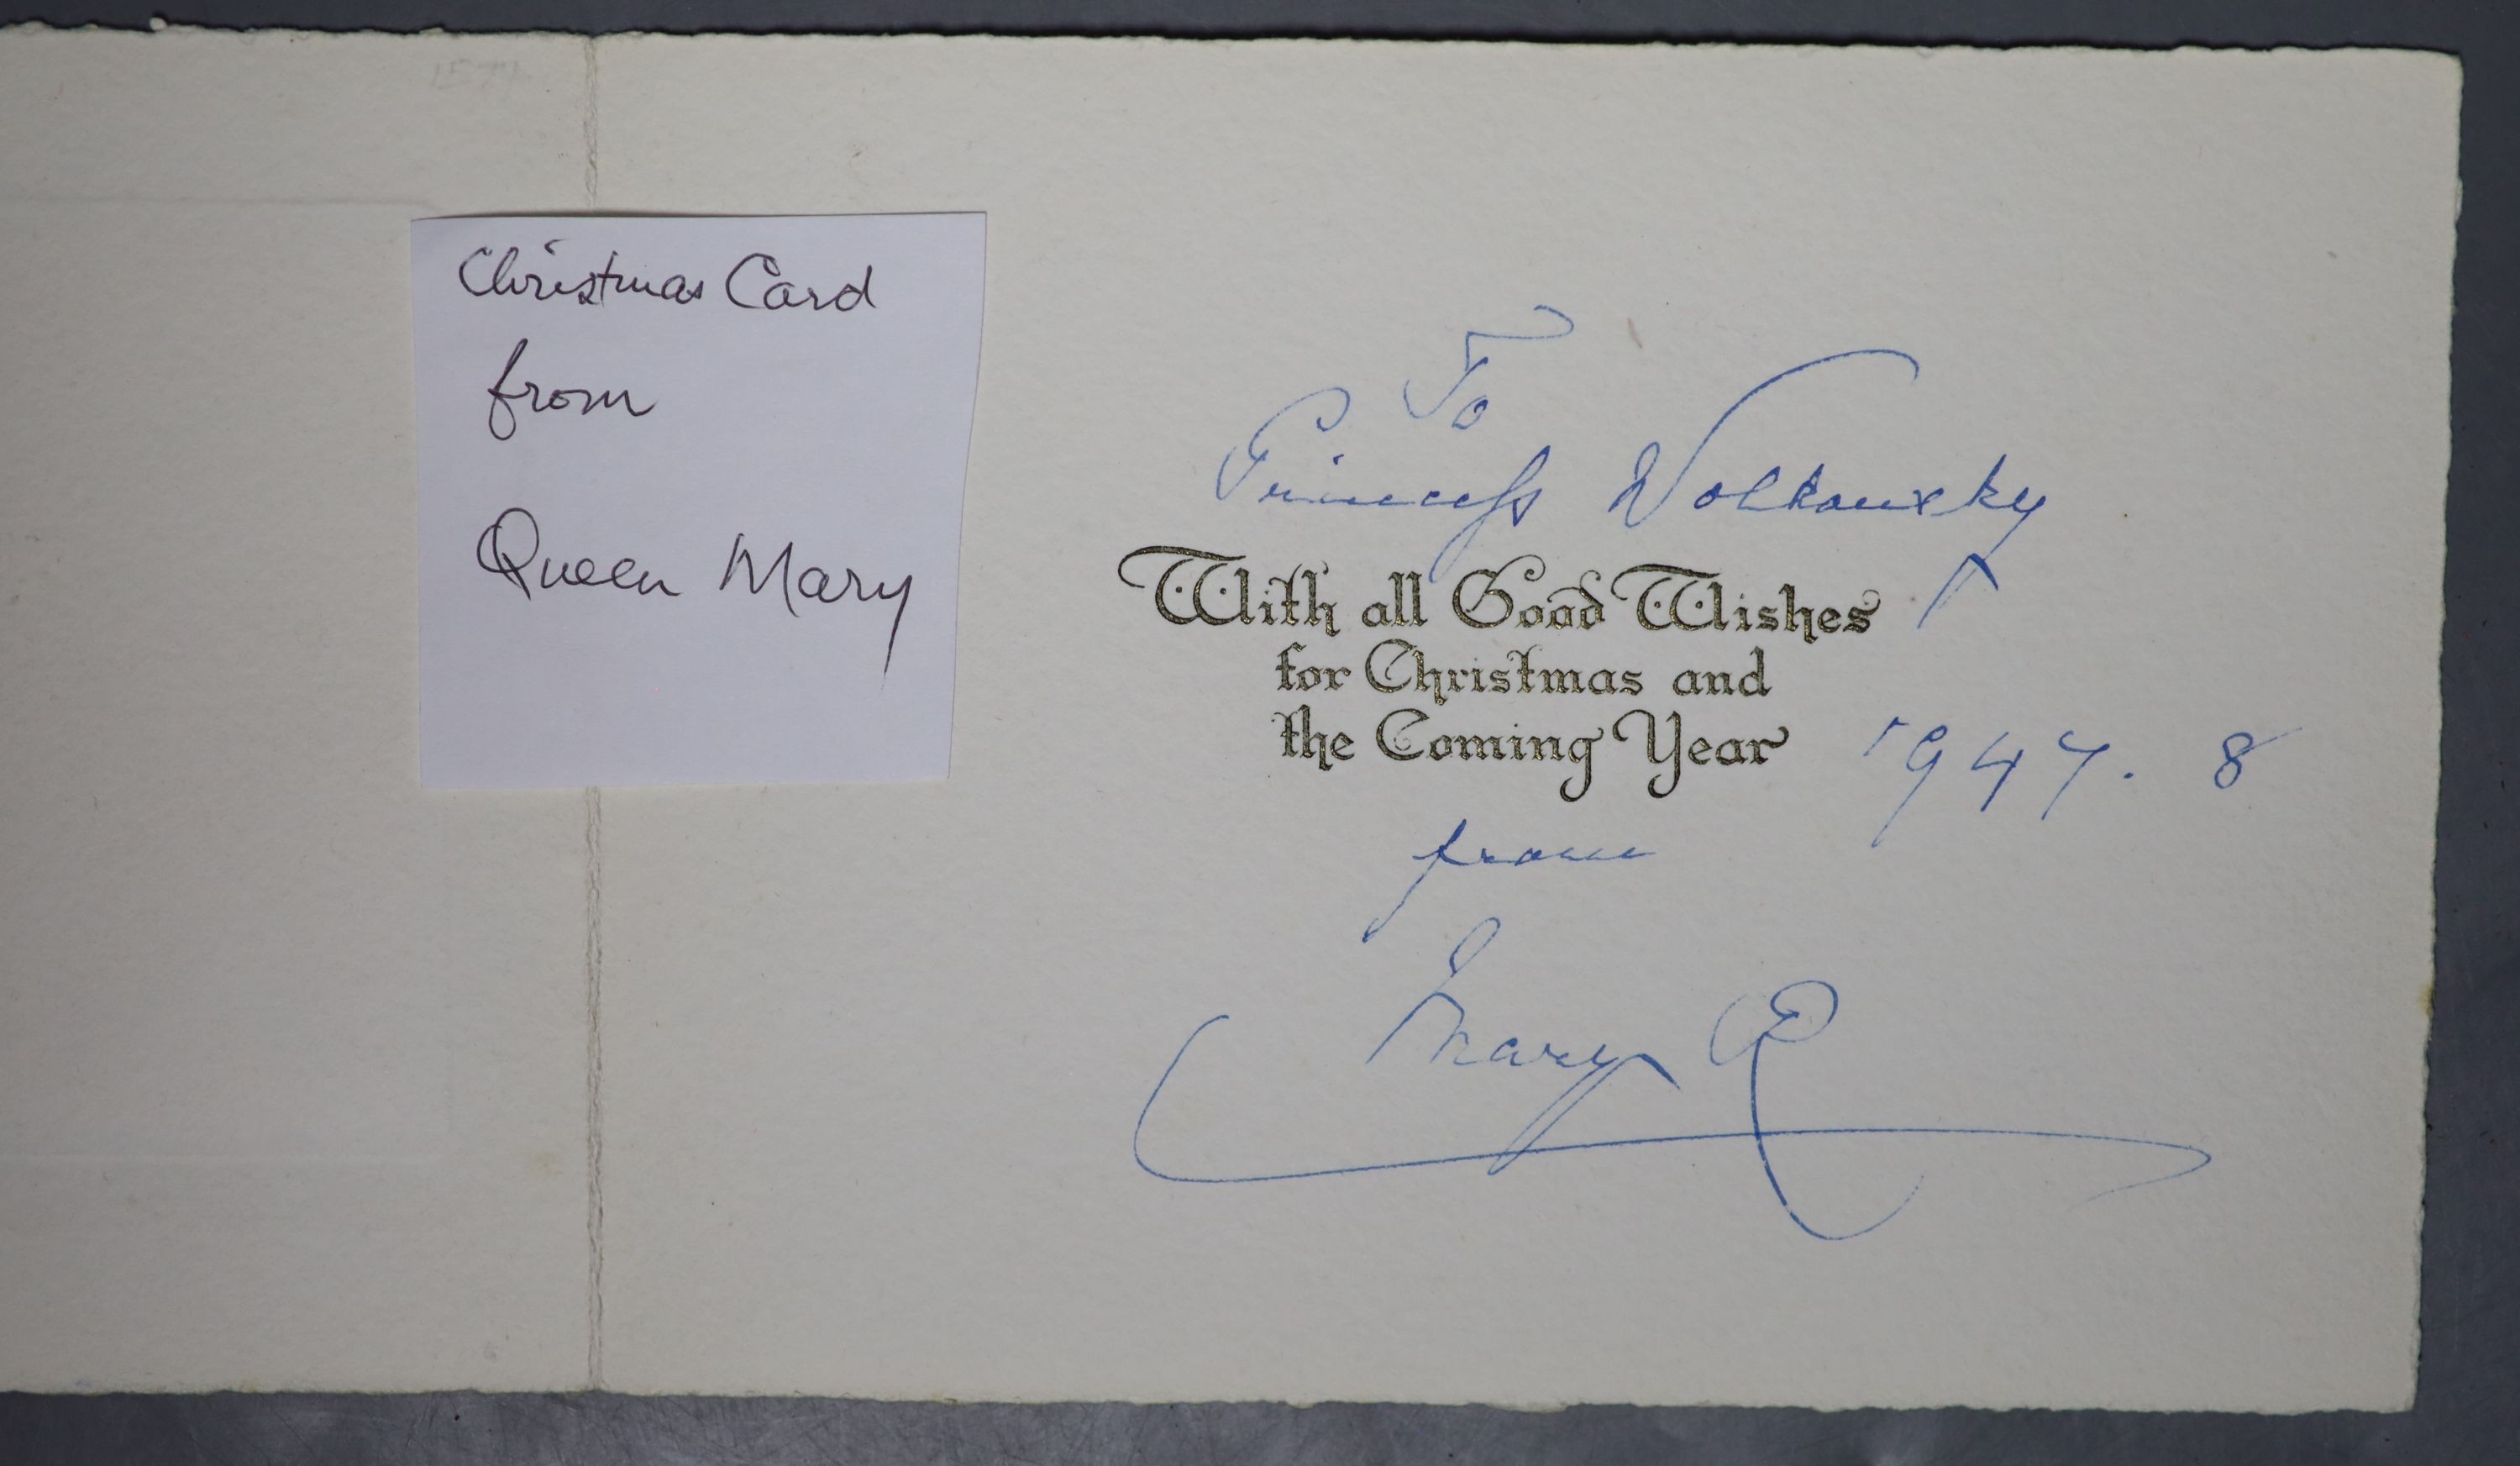 Christmas Card
from
Queen Mary
To
Princess Wolkonsky
With all Good Wishes
for Christmas and
the Coming Year 1947. 8
from
Mary R